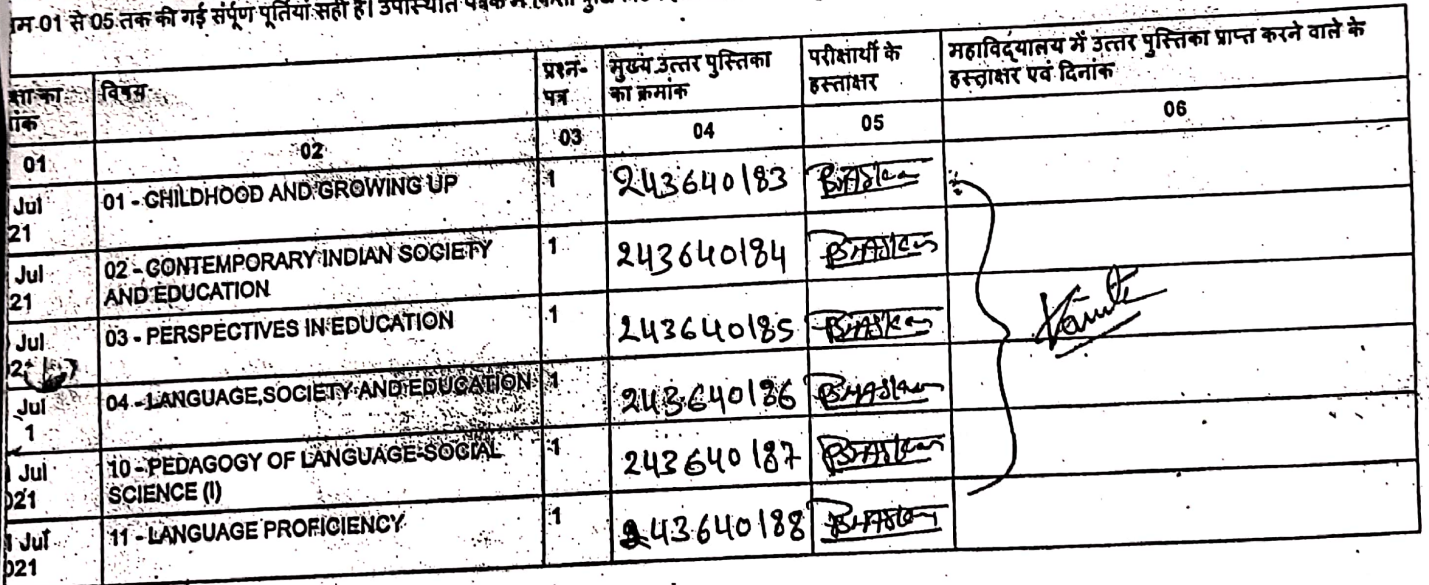 म 01 से 05 तक की गई संपूर्ण पूर्तियां सही है। उपस्थिति पत्रक में
क्षा का
विषय
प्रश्न-
पत्र
मुख्य उत्तर पुस्तिका
का क्रमांक
परीक्षार्थी के
हस्ताक्षर
महाविद्यालय में उत्तर पुस्तिका प्राप्त करने वाले के
हस्ताक्षर एवं दिनांक
01 02 03 04 05 06
Jul
21
01 - CHILDHOOD AND GROWING UP 1 243640183
Jul
21
02 - CONTEMPORARY INDIAN SOCIETY
AND EDUCATION
1 243640184
Jul
03 - PERSPECTIVES IN EDUCATION 1 243640185
Jul
1
04 - LANGUAGE,SOCIETY AND EDUCATION 1 243640186
Jul
021
10 - PEDAGOGY OF LANGUAGE-SOCIAL
SCIENCE (I)
1 243640187
Jul
021
11 - LANGUAGE PROFICIENCY 1 243640188